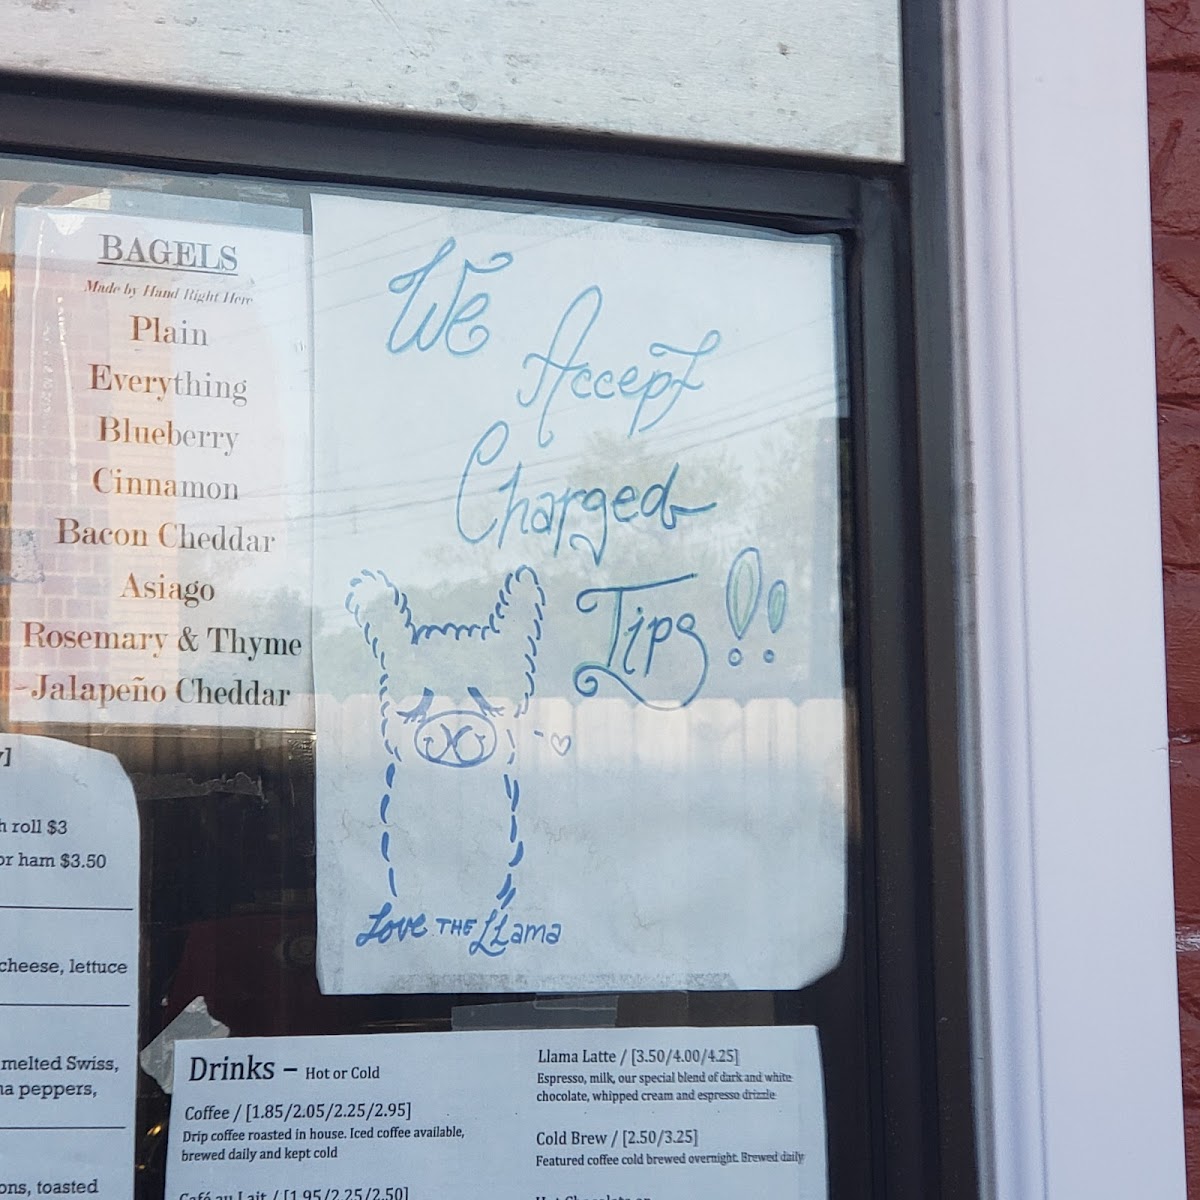 BAGELS
Made by Hand Right Here
Plain
Everything
Blueberry
Cinnamon
Bacon Cheddar
Asiago
Rosemary & Thyme
Jalapeño Cheddar
We
Accept
Charged
Tips!!
Love THE LLama
roll $3
or ham $3.50
cheese, lettuce
melted Swiss,
peppers,
toasted
Drinks – Hot or Cold
Coffee / [1.85/2.05/2.25/2.95]
Drip coffee roasted in house. Iced coffee available,
brewed daily and kept cold
Café au Lait / [1.95/2.25/2.50]
Llama Latte / [3.50/4.00/4.25]
Espresso, milk, our special blend of dark and white
chocolate, whipped cream and espresso drizzle
Cold Brew / [2.50/3.25]
Featured coffee cold brewed overnight. Brewed daily